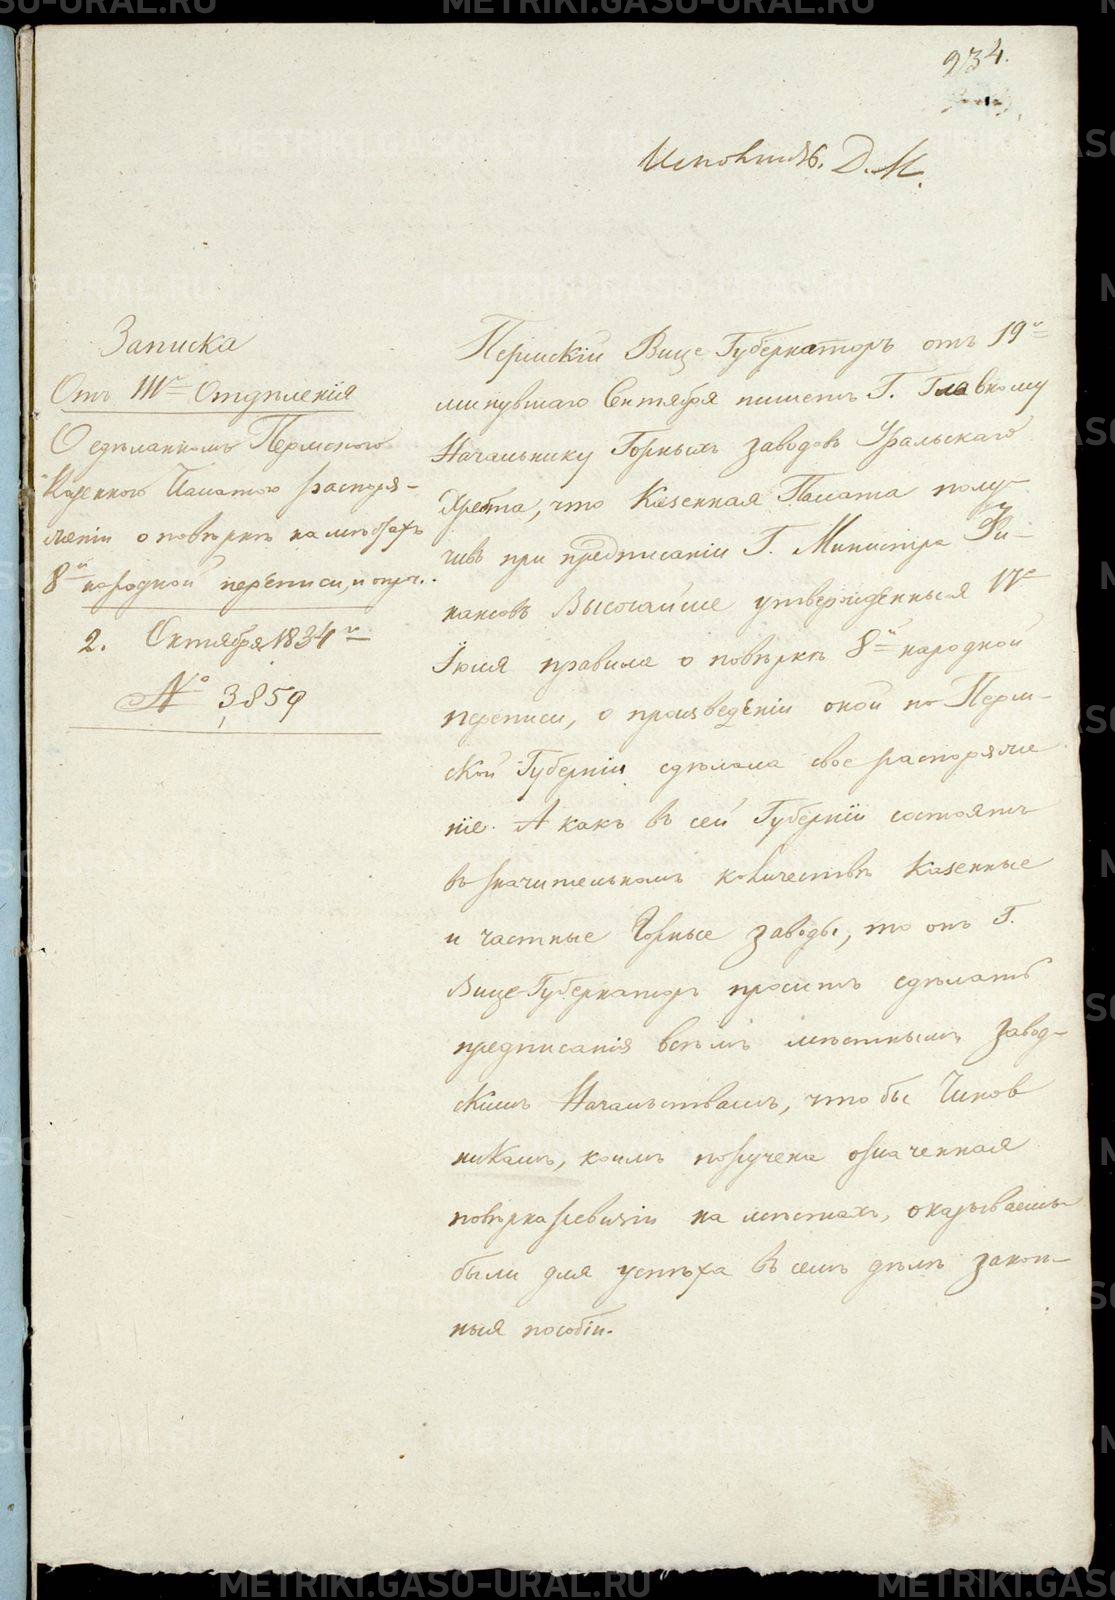 934.
Исполнить. Д. М.
Записка
Отъ III<sup>го</sup> Отдѣленія
О сдѣланномъ Пермскою
Казенною Палатою распоря-
женіи о повѣркѣ на мѣстахъ
8<sup>й</sup> народной переписи, и проч.
2. Октября 1834<sup>го</sup>
№ 3,859
Пермскій Вице Губернаторъ отъ 19<sup>го</sup>
минувшаго Сентября пишетъ Г. Главному
Начальнику Горныхъ заводовъ Уральскаго
Хребта, что Казенная Палата полу-
чивъ при предписаніи Г. Министра Фи-
нансовъ Высочайше утвержденныя 17<sup>го</sup>
Іюля правила о повѣркѣ 8<sup>й</sup> народной
переписи, о произведеніи оной по Перм-
ской Губерніи сдѣлала свое распоряже
ніе. А какъ въ сей Губерніи состоятъ
въ значительномъ количествѣ Казенные
и частные Горные заводы, то онъ Г.
Вице-Губернаторъ проситъ сдѣлать
предписанія всѣмъ мѣстнымъ завод-
скимъ Начальствамъ, что бы Чинов
никамъ, коимъ поручена означенная
повѣрка ревизіи на мѣстахъ, оказываемы
были для успѣха въ семъ дѣлѣ закон-
ныя пособіи.
METRIKI.GASO-URAL.RU